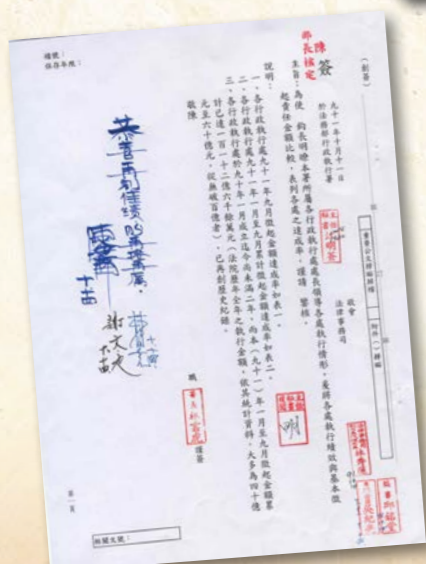 檔號：
保存年限：
（創簽）
簽
九十一年十月十一日
於法務部行政執行署
敬會
法律事務司
陳
部長核定
主旨：為使　鈞長明瞭本署所屬各行政執行處處長領導各處執行情形，爰將各處執行績效與基本徵
起責任金額比較，表列各處之達成率，謹請　鑒核。
說明：
一、各行政執行處九十一年九月徵起金額達成率如表一。
二、各行政執行處九十一年一月至九月累計徵起金額達成率如表二。
三、各行政執行處於九十年一月成立迄今尚未滿二年，而本（九十一）年一月至九月徵起金額累
計已達一百一十二億六千餘萬元（法院歷年全年之執行金額，依其統計資料，大多為四十億
元至六十億元，從無破百億者），已再創歷史紀錄。
敬陳
職
謹簽
恭喜再創佳績
謝文定
第一頁
相關文號：